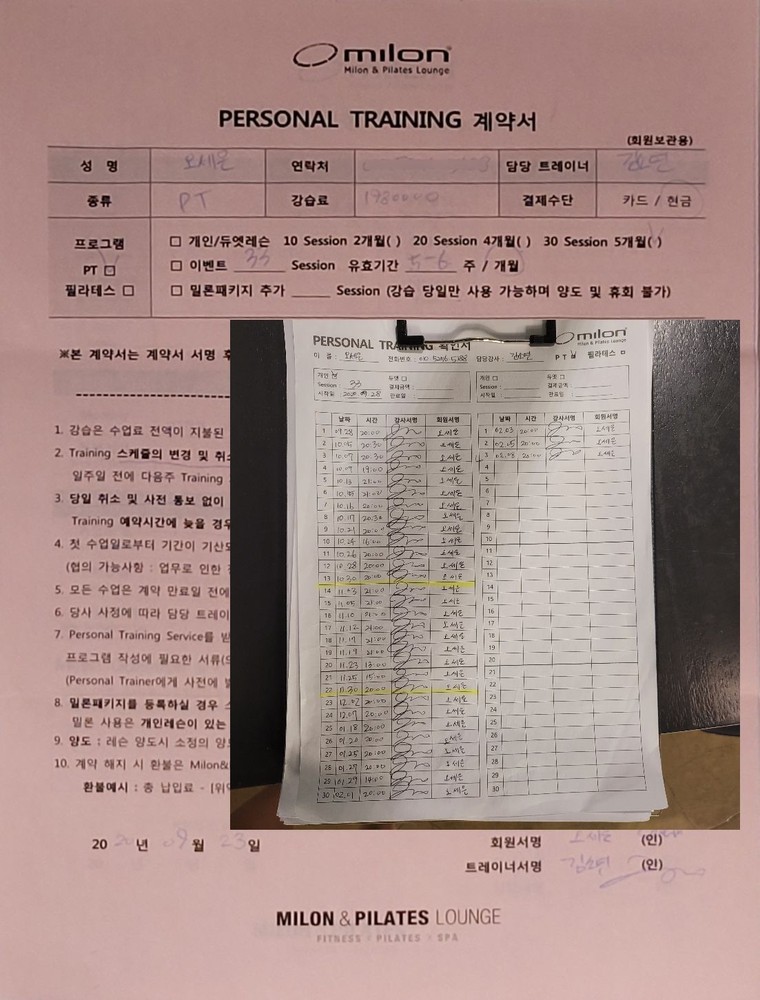 milon
Milon & Pilates Lounge
PERSONAL TRAINING 계약서
(회원보관용)
성 명 오세은 연락처 담당 트레이너
종류 PT 강습료 1980000 결제수단 카드 / 현금
프로그램
PT
필라테스 □
□ 개인/듀엣레슨 10 Session 2개월( ) 20 Session 4개월( ) 30 Session 5개월( )
□ 이벤트 33 Session 유효기간 5-6 주 / 개월
□ 밀론패키지 추가 ______ Session (강습 당일만 사용 가능하며 양도 및 휴회 불가)
※본 계약서는 계약서 서명
1. 강습은 수업료 전액이 지불된
2. Training 스케줄의 변경 및
일주일 전에 다음주 Training
3. 당일 취소 및 사전 통보 없이
Training 예약시간에 늦을 경우
4. 첫 수업일로부터 기간이
(협의 가능사항 : 업무로 인한
5. 모든 수업은 계약 만료일 전에
6. 당사 사정에 따라 담당
7. Personal Training Service를
프로그램 작성에 필요한
(Personal Trainer에게 사전에
8. 밀론패키지를 등록하실 경우
밀론 사용은 개인레슨이 있는
9. 양도 : 레슨 양도시 소정의
10. 계약 해지 시 환불은
환불예시 : 총 납입료 -
PERSONAL TRAINING 확인서
milon
이 름 : 오세은 전화번호 : 담당강사 : PT 필라테스 □
개인 듀엣 □ 개인 □ 듀엣 □
Session : 33 결제금액 : Session : 결제금액 :
시작일 : 2020.09.28 만료일 : 시작일 : 만료일 :
날짜 시간 강사서명 회원서명 날짜 시간 강사서명 회원서명
1 09.28 20:00 오세은 1 02.03 20:00 오세은
2 10.05 20:30 오세은 2 02.05 20:00 오세은
3 10.07 20:30 오세은 3 02.08 20:00 오세은
4 10.09 19:00 오세은 4
5 10.13 21:00 오세은 5
6 21:00 오세은 6
7 10.16 20:00 오세은 7
8 10.19 20:30 오세은 8
9 10.21 20:00 오세은 9
10 10.24 16:00 오세은 10
11 10.26 20:00 오세은 11
12 10.28 20:00 오세은 12
13 10.30 20:00 오세은 13
14 11.03 21:00 오세은 14
15 11.05 21:00 오세은 15
16 11.10 21:00 오세은 16
17 11.12 21:00 오세은 17
18 11.17 21:00 오세은 18
19 11.19 21:00 오세은 19
20 11.23 18:00 오세은 20
21 11.25 15:00 오세은 21
22 11.30 20:00 오세은 22
23 12.02 20:00 오세은 23
24 12.07 20:00 오세은 24
25 01.18 20:00 오세은 25
26 01.20 20:00 오세은 26
27 01.25 20:00 오세은 27
28 01.27 20:00 오세은 28
29 01.29 19:00 오세은 29
30 02.01 20:00 오세은 30
20 20 년 09 월 23 일
회원서명 오세은 (인)
트레이너서명 (인)
MILON & PILATES LOUNGE
FITNESS · PILATES · SPA